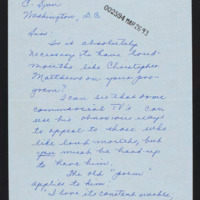 C-Span
Washington, D.C.
000594 MAR 26 93
Sirs:
Is it absolutely
necessary to have loud-
mouths like Christopher
Matthews on your pro-
gram?
I can see that some
commercial TV can
use his obnoxious ways
to appeal to those who
like loud mouths, but
you must be hard-up
to have him.
The old "poem"
applies to him:
"I love its